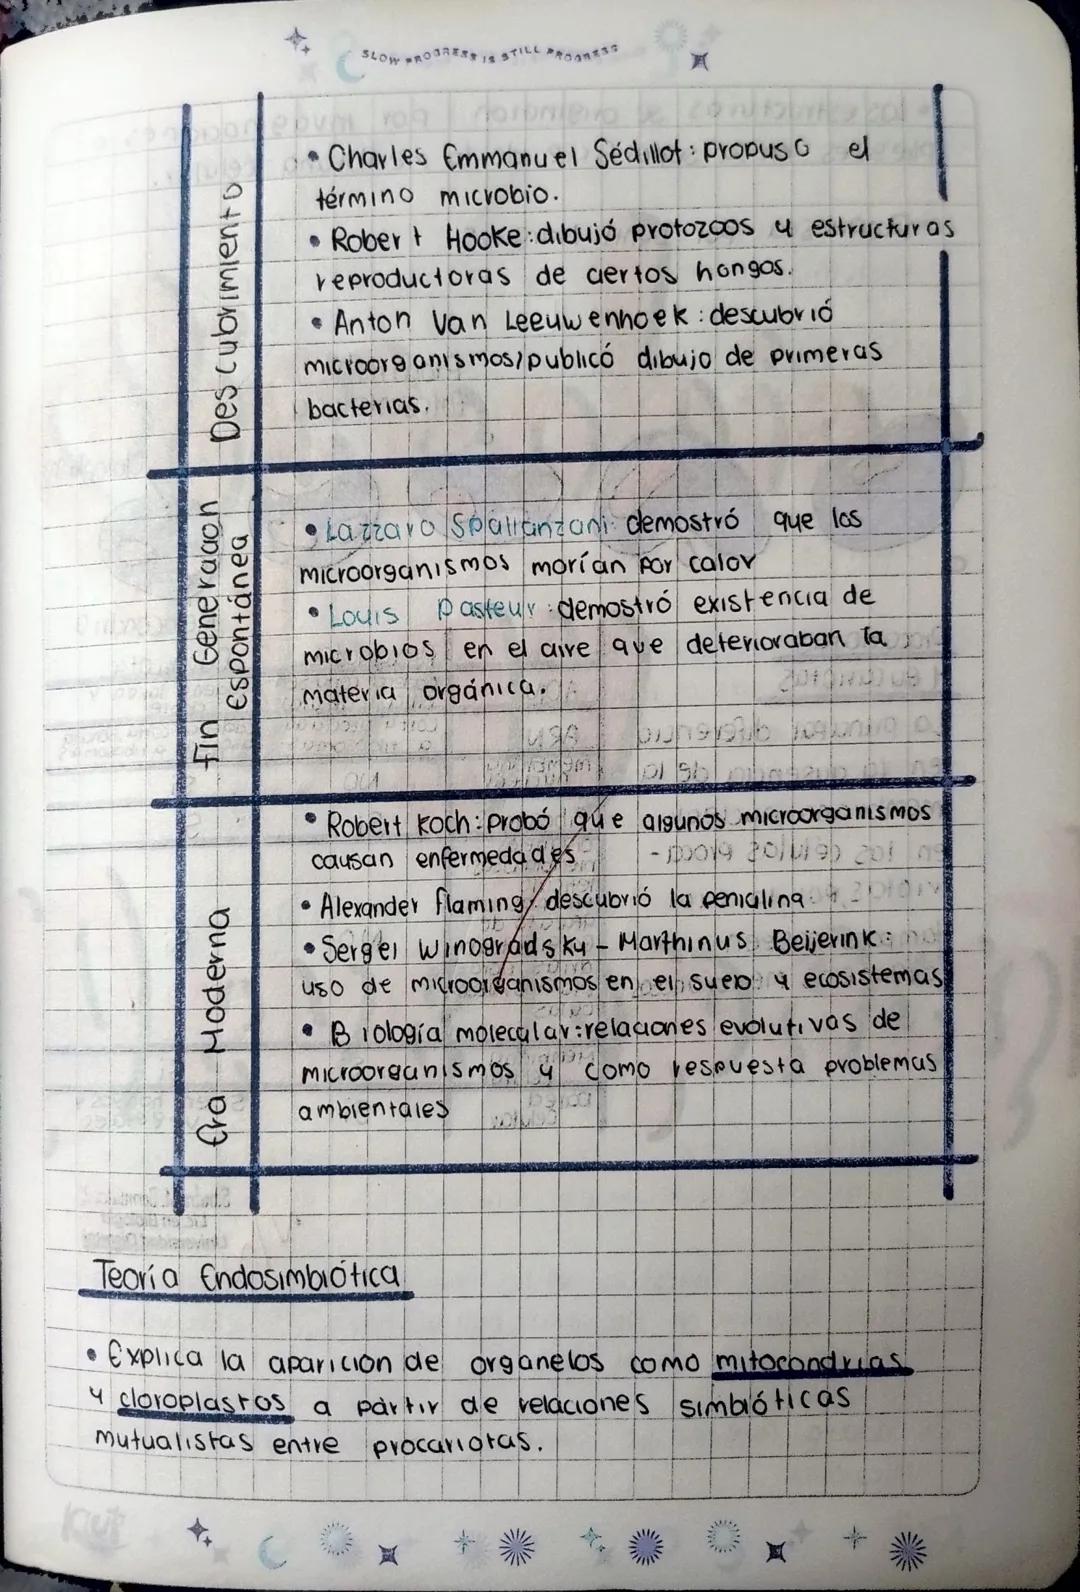 SLOW PROGRESS IS STILL PROGRESS
Descubrimiento
• Charles Emmanuel Sédillot: propuso el
término microbio.
• Robert Hooke: dibujó protozoos y estructuras
reproductoras de ciertos hongos.
• Anton Van Leeuwenhoek: descubrió
microorganismos/publicó dibujo de primeras
bacterias.
Fin Generación
espontánea
• Lazzaro Spallanzani: demostró que los
microorganismos morían por calor
• Louis Pasteur: demostró existencia de
microbios en el aire que deterioraban la
materia orgánica.
Era Moderna
• Robert Koch: probó que algunos microorganismos
causan enfermedades
• Alexander Flaming: descubrió la penicilina
• Sergei Winogradsky - Marthinus Beijerink:
uso de microorganismos en el suelo y ecosistemas
• Biología molecular: relaciones evolutivas de
microorganismos y como respuesta problemas
ambientales
Teoría Endosimbiótica
• Explica la aparición de organelos como mitocondrias
y cloroplastos a partir de relaciones simbióticas
mutualistas entre procariotas.